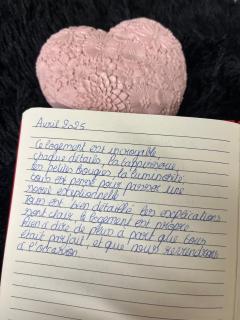 Avril 2025
Ce logement est incroyable
chaque détails, la balnéo
les petites bougies, la luminosité
tout est pensé pour passer une
soirée exceptionnelle.
Tout est bien détaillé, les explications
sont clair, le logement est propre
rien a dire de plus a part que tout
était parfait, et que nous reviendrons
à l'occasion.